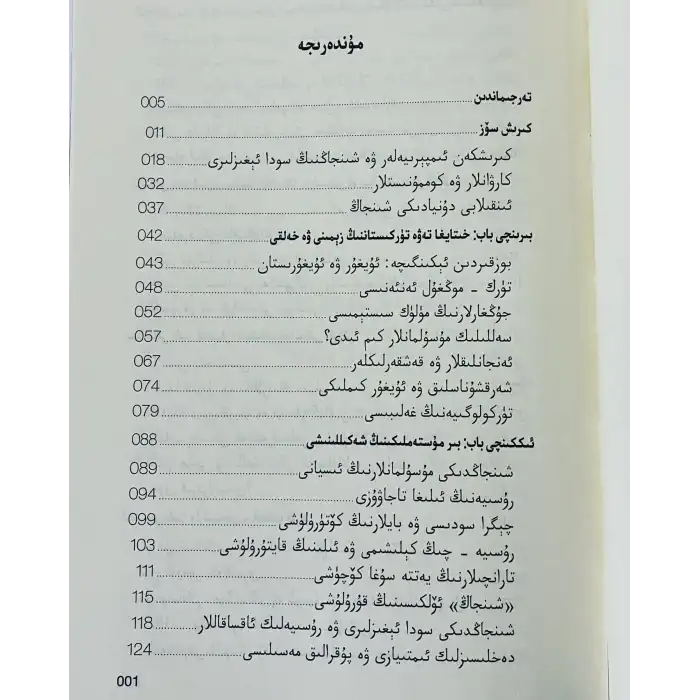 مۇندەرىجە
تەرجىماندىن 005
كىرىش سۆز 011
كىرىشكەن ئىمپېرىيەلەر ۋە شىنجاڭنىڭ سودا ئېغىزلىرى 018
كارۋانلار ۋە كوممۇنىستلار 032
ئىنقىلابى دۇنيادىكى شىنجاڭ 037
بىرىنچى باب: خىتايغا تەۋە تۈركىستاننىڭ زېمىنى ۋە خەلقى 042
بوزقىردىن ئېكىنگىچە: ئۇيغۇر ۋە ئۇيغۇرىستان 043
تۈرك - موڭغۇل ئەنئەنىسى 048
جۇڭغارلارنىڭ مۈلۈك سىستېمىسى 052
سەللىلىك مۇسۇلمانلار كىم ئىدى؟ 057
ئەنجانلىقلار ۋە قەشقەرلىكلەر 067
شەرقشۇناسلىق ۋە ئۇيغۇر كىملىكى 074
تۈركولوگىيەنىڭ غەلىبىسى 079
ئىككىنچى باب: بىر مۇستەملىكىنىڭ شەكىللىنىشى 088
شىنجاڭدىكى مۇسۇلمانلارنىڭ ئىسيانى 089
رۇسىيەنىڭ ئىلىغا تاجاۋۇزى 094
چېگرا سودىسى ۋە بايلارنىڭ كۆتۈرۈلۈشى 099
رۇسىيە - چىڭ كېلىشىمى ۋە ئىلىنىڭ قايتۇرۇلۇشى 103
تارانچىلارنىڭ يەتتە سۇغا كۆچۈشى 111
«شىنجاڭ» ئۆلكىسىنىڭ قۇرۇلۇشى 115
شىنجاڭدىكى سودا ئېغىزلىرى ۋە رۇسىيەلىك ئاقساقاللار 118
دەخلىسىزلىك ئىمتىيازى ۋە پۇقرالىق مەسىلىسى 124
001